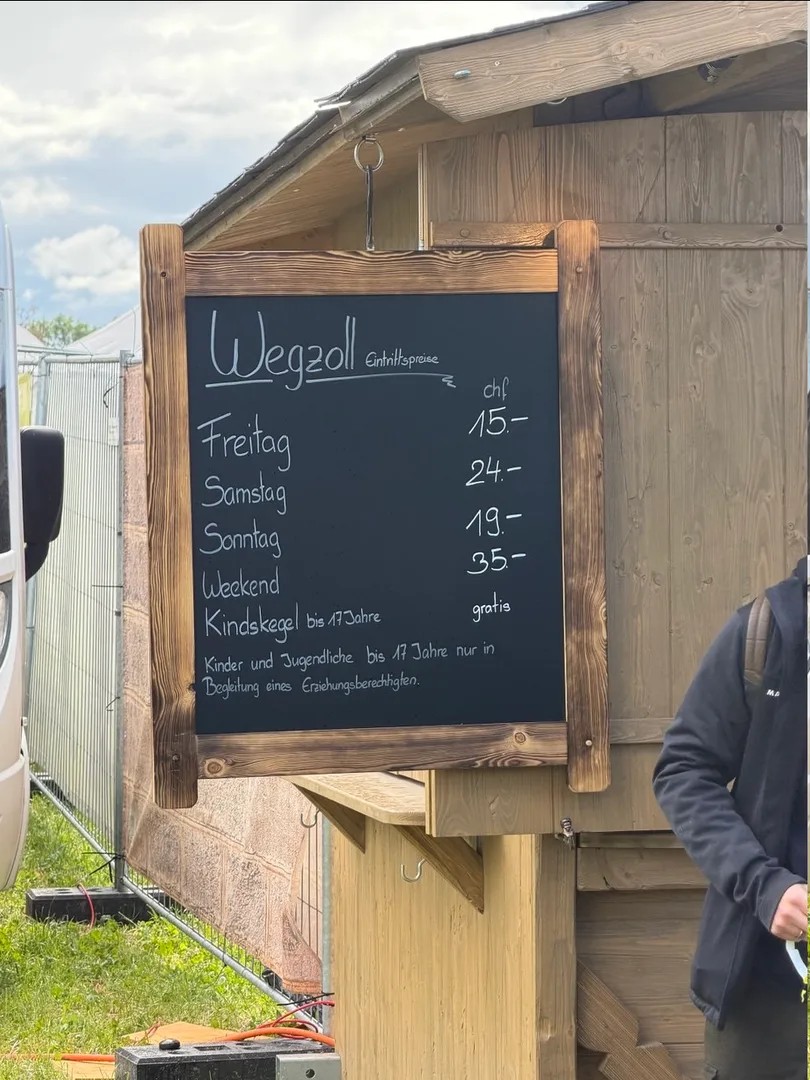 Wegzoll Eintrittspreise
chf
Freitag 15.-
Samstag 24.-
Sonntag 19.-
Weekend 35.-
Kindskegel bis 17 Jahre gratis
Kinder und Jugendliche bis 17 Jahre nur in
Begleitung eines Erziehungsberechtigten.
MA